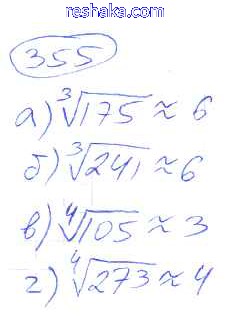 reshaka.com
355
а) ∛175 ≈ 6
б) ∛241 ≈ 6
в) ∜105 ≈ 3
г) ∜273 ≈ 4